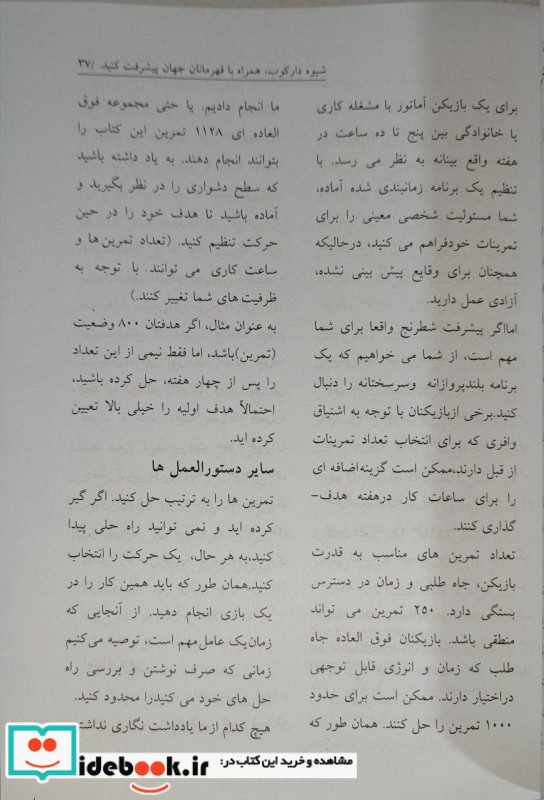 شیوه دارکوب، همراه با قهرمانان جهان پیشرفت کنید. /۳۷
برای یک بازیکن آماتور با مشغله کاری
یا خانوادگی بین پنج تا ده ساعت در
هفته واقع بینانه به نظر می رسد. با
تنظیم یک برنامه زمانبندی شده آماده،
شما مسئولیت شخصی معینی را برای
تمرینات خودفراهم می کنید، درحالیکه
همچنان برای وقایع پیش بینی نشده،
آزادی عمل دارید.
امااگر پیشرفت شطرنج واقعا برای شما
مهم است، از شما می خواهیم که یک
برنامه بلندپروازانه وسرسختانه را دنبال
کنید.برخی ازبازیکنان با توجه به اشتیاق
وافری که برای انتخاب تعداد تمرینات
از قبل دارند،ممکن است گزینه اضافه ای
را برای ساعات کار درهفته هدف-
گذاری کنند.
تعداد تمرین های مناسب به قدرت
بازیکن، جاه طلبی و زمان در دسترس
بستگی دارد. ۲۵۰ تمرین می تواند
منطقی باشد. بازیکنان فوق العاده جاه
طلب که زمان و انرژی قابل توجهی
دراختیار دارند. ممکن است برای حدود
۱۰۰۰ تمرین را حل کنند. همان طور که
ما انجام دادیم. یا حتی مجموعه فوق
العاده ای ۱۱۲۸ تمرین این کتاب را
بتوانند انجام دهند. به یاد داشته باشید
که سطح دشواری را در نظر بگیرید و
آماده باشید تا هدف خود را در حین
حرکت تنظیم کنید. (تعداد تمرین ها و
ساعت کاری می توانند. با توجه به
ظرفیت های شما تغییر کنند.)
به عنوان مثال، اگر هدفتان ۸۰۰ وضعیت
(تمرین)باشد، اما فقط نیمی از این تعداد
را پس از چهار هفته، حل کرده باشید،
احتمالاً هدف اولیه را خیلی بالا تعیین
کرده اید.
سایر دستورالعمل ها
تمرین ها را به ترتیب حل کنید. اگر گیر
کرده اید و نمی توانید راه حلی پیدا
کنید،به هر حال، یک حرکت را انتخاب
کنید.همان طور که باید همین کار را در
یک بازی انجام دهید. از آنجایی که
زمان یک عامل مهم است، توصیه می کنیم
زمانی که صرف نوشتن و بررسی راه
حل های خود می کنیدرا محدود کنید.
هیچ کدام از ما یادداشت نگاری نداشت
مشاهده و خرید این کتاب در:
idebook.ir